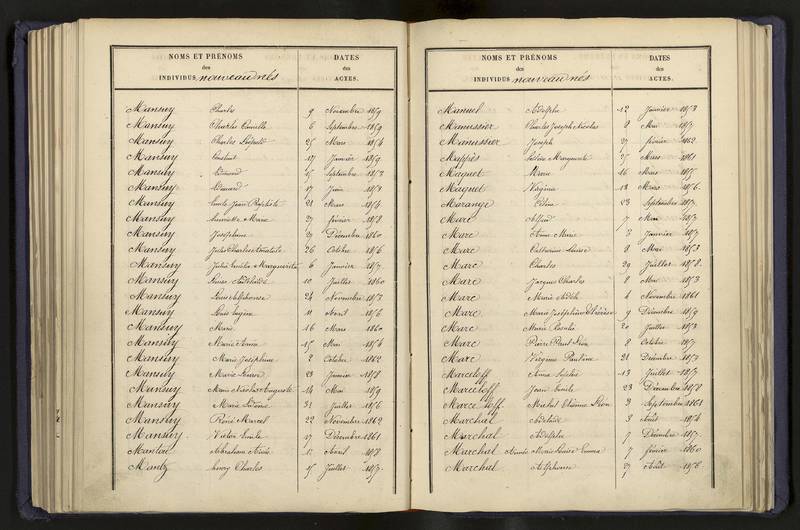 NOMS ET PRÉNOMS
des
INDIVIDUS nouveau nés
DATES
des
ACTES.
Mansuy Charles 9 Novembre 1859
Mansuy Charles Camille 6 Septembre 1859
Mansuy Charles Léopold 25 Mars 1854
Mansuy Constant 17 Janvier 1859
Mansuy Edmond 15 Septembre 1853
Mansuy Edouard 17 Juin
Mansuy Emile Jean Baptiste 21 Mars 1854
Mansuy Henriette Marie 27 février 1858
Mansuy Joséphine 29 Décembre 1860
Mansuy Jules Charles 26 Octobre 1856
Mansuy Julie Marguerite 6 Janvier 1857
Mansuy 10 Juillet 1860
Mansuy Louis Alphonse 24 Novembre 1857
Mansuy Louis Eugène 11 Avril 1856
Mansuy Marie 16 Mars 1860
Mansuy Marie Anna 15 Mai 1854
Mansuy Marie Joséphine 2 Octobre 1862
Mansuy Marie Louise 23 Janvier 1858
Mansuy Marie Nicolas Auguste 14 Mai 1859
Mansuy Marie 31 Juillet 1856
Mansuy René Marcel 22 Novembre 1862
Mansuy Victor Emile 17 Décembre 1861
Mantou Abraham Aimé Avril 1858
Mantz Henry Charles 15 Juillet 1857
NOMS ET PRÉNOMS
des
INDIVIDUS nouveau nés
DATES
des
ACTES.
Manuel Adolphe 12 Janvier 1858
Manussier Charles Joseph Nicolas 8 Mai 1857
Manussier Joseph 27 février 1862
Mappès Marguerite 25 Mars 1861
Maquet Marie 16 Mars 1857
Maquet Régina 18 Mars 1856
Marange Céline 23 Septembre 1857
Marc Alfred 7 Mai 1857
Marc Anne Marie 2 Janvier 1857
Marc Catherine Louise 8 Mai 1853
Marc Charles 29 Juillet 1858
Marc Jacques Charles 8 Mai 1853
Marc Marie 4 Novembre 1861
Marc Marie Joséphine Thérèse 9 Décembre 1859
Marc Marie Rosalie 20 Juillet 1853
Marc Pierre Paul Léon 8 Octobre 1857
Marc Virginie Pauline 21 Décembre 1857
Marceloff Anna 13 Juillet 1857
Marceloff Jean Emile 23 Décembre 1858
Marceloff Michel Etienne Léon 3 Septembre 1861
Marchal Adélaïde 3 Août 1854
Marchal Adolphe 7 Décembre 1857
Marchal Aimée Marie Louise Emma 7 février 1860
Marchal Alphonse 27 Août 1856